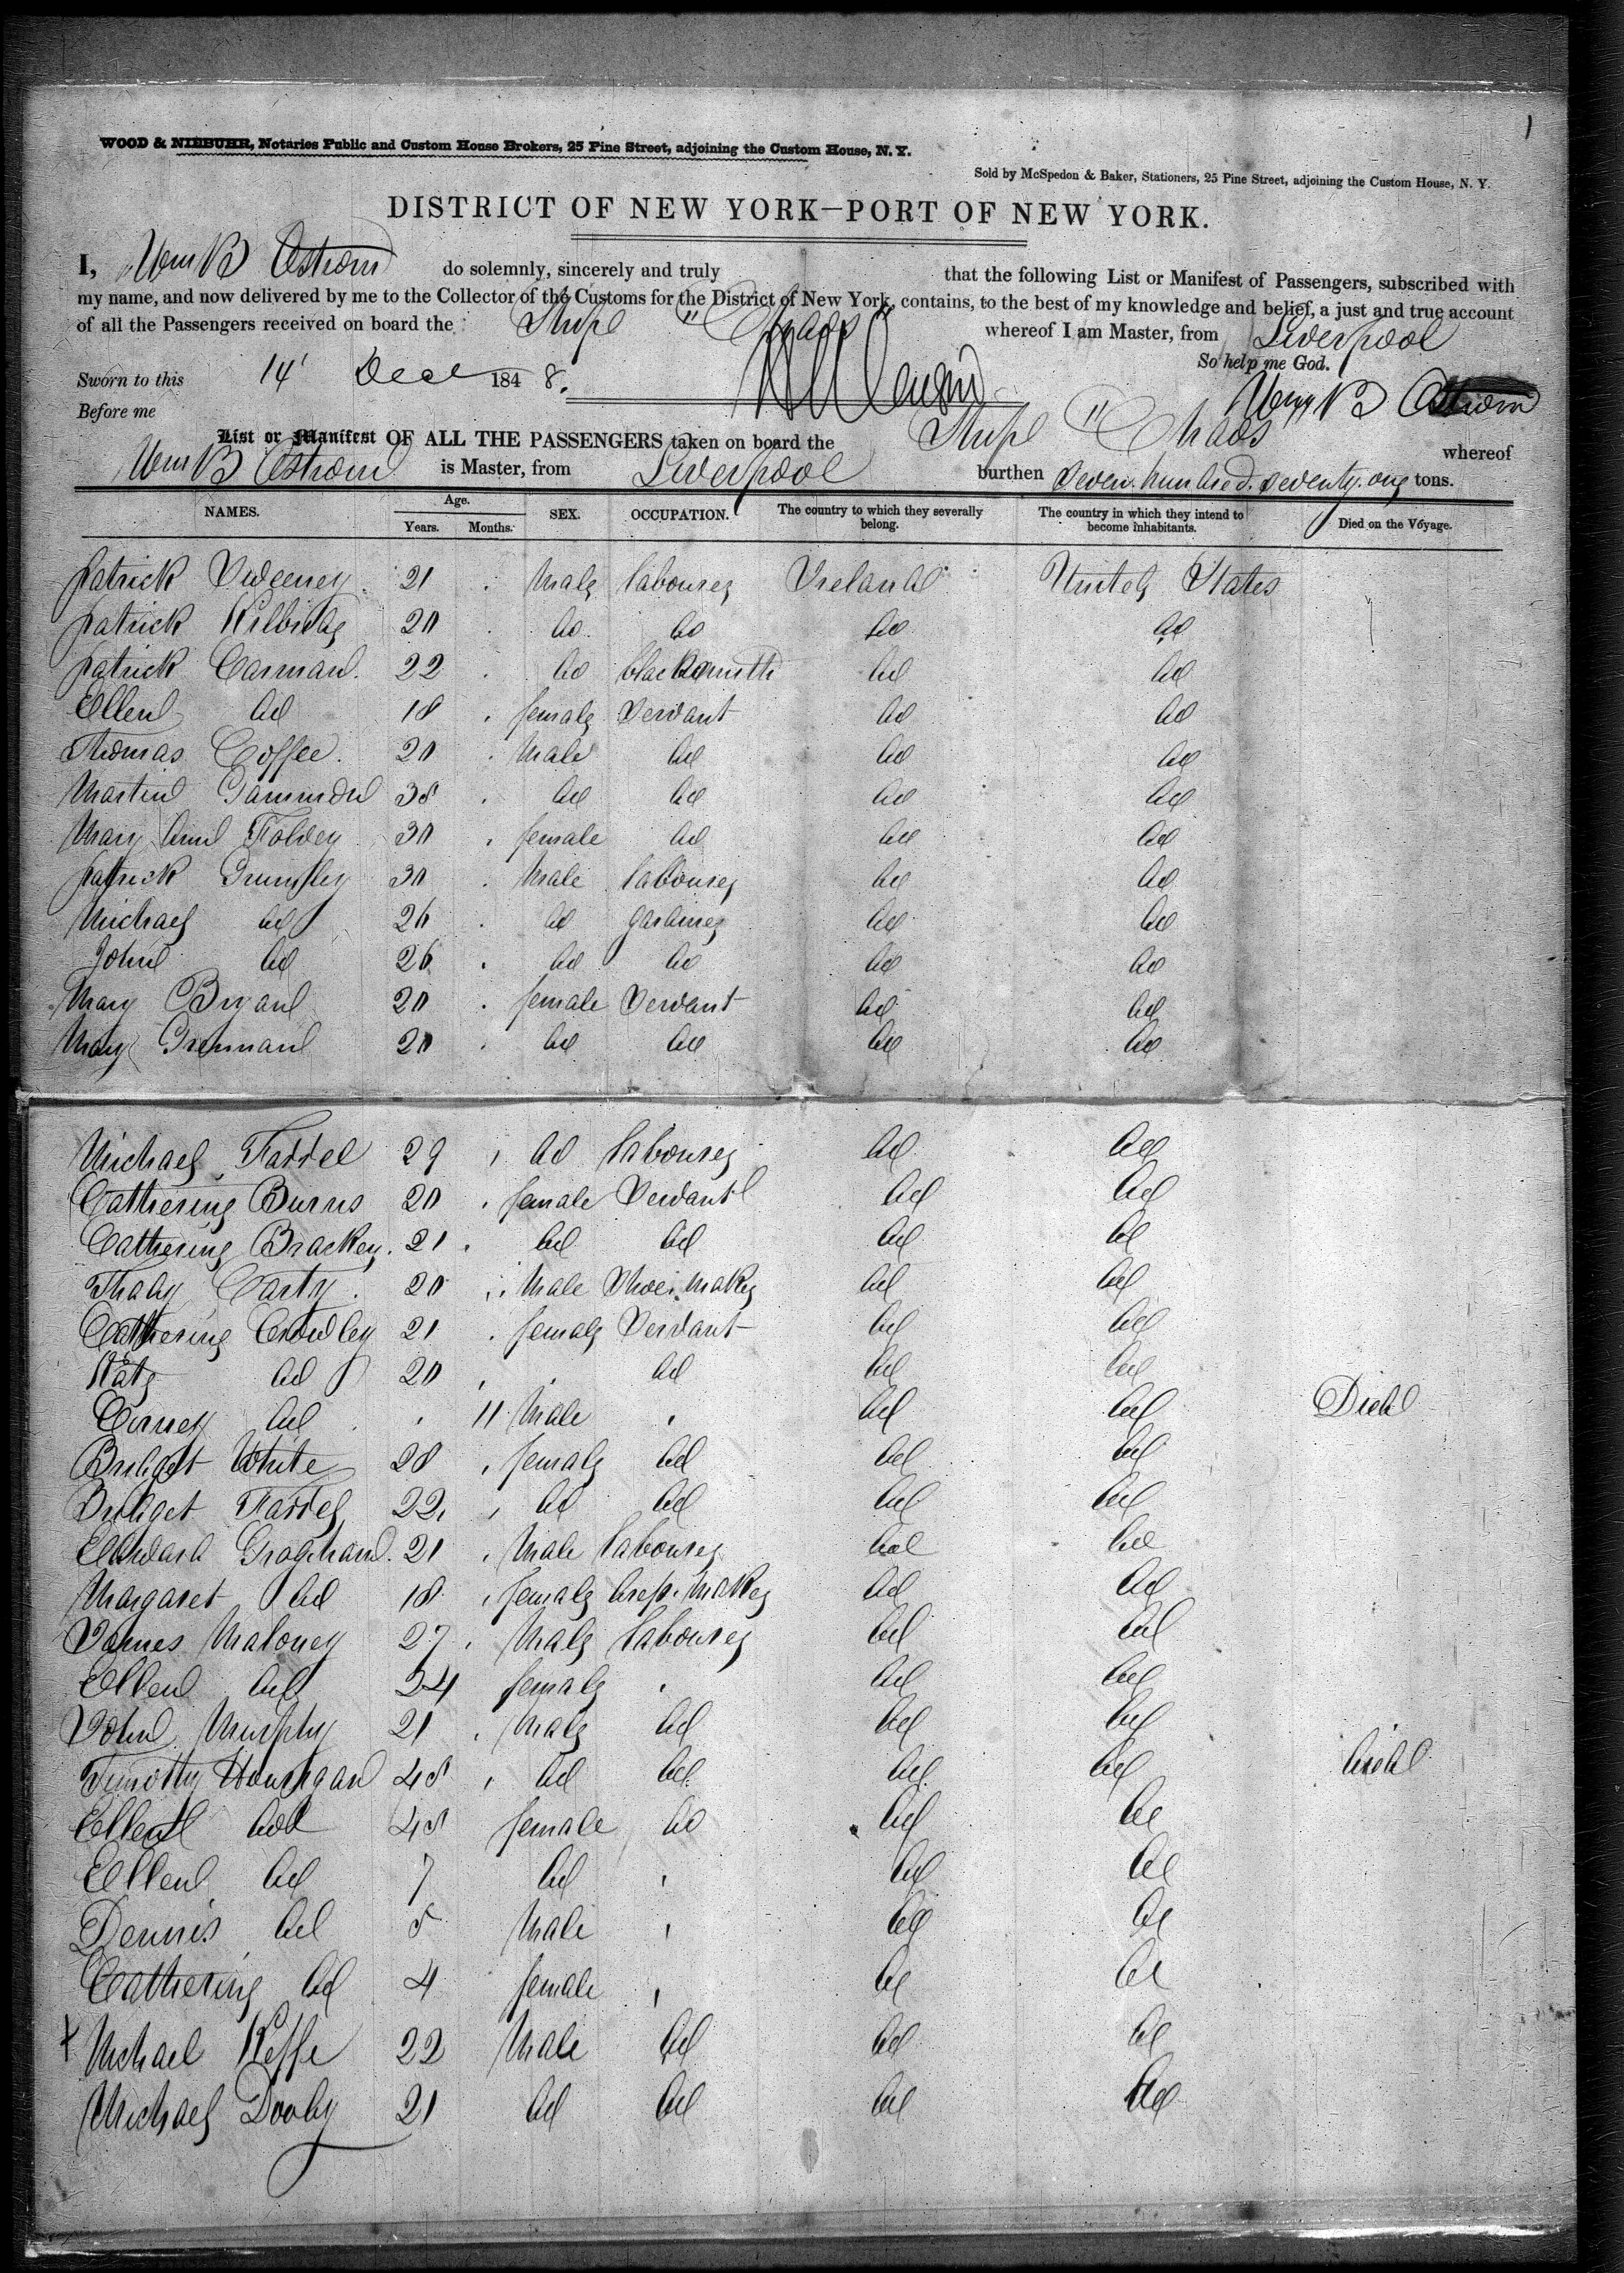 1
WOOD & NIEBUHR, Notaries Public and Custom House Brokers, 25 Pine Street, adjoining the Custom House, N. Y.
Sold by McSpedon & Baker, Stationers, 25 Pine Street, adjoining the Custom House, N. Y.
DISTRICT OF NEW YORK—PORT OF NEW YORK.
I, Wm B Ostrom do solemnly, sincerely and truly that the following List or Manifest of Passengers, subscribed with
my name, and now delivered by me to the Collector of the Customs for the District of New York, contains, to the best of my knowledge and belief, a just and true account
of all the Passengers received on board the Shipe "Chaos" whereof I am Master, from Liverpool
So help me God.
Sworn to this 14 Dece 1848.
Wm B Ostrom
Before me
List or Manifest OF ALL THE PASSENGERS taken on board the Shipe "Chaos" whereof
Wm B Ostrom is Master, from Liverpool burthen Seven hundred. Seventy. one tons.
NAMES. Age. Years. Months. SEX. OCCUPATION. The country to which they severally belong. The country in which they intend to become inhabitants. Died on the Voyage.
Patrick Sweeney 21 Male labourer Ireland United States
Patrick Kilbride 20 do do do do
Patrick Carman 22 do blacksmith do do
Ellen do 18 female Servant do do
Thomas Coffee 20 Male do do do
Martin Gammon 38 do do do do
Mary Ann 30 female do do do
Patrick 30 Male labourer do do
Michael do 20 do gardiner do do
John do 26 do do do do
Mary Bryan 20 female Servant do do
Mary Grennan 20 do do do do
Michael Farrel 29 do labourer do do
Catherine Burns 20 female Servant do do
Catherine Brackey 21 do do do do
Thady Carty 20 Male Shoe. Maker do do
Catherine Crowley 21 female Servant do do
Kate do 20 do do do
do 11 Male do do Died
Bridget White 28 female do do do
Bridget Farrel 22 do do do do
Edward Graghan 21 Male labourer do do
Margaret do 18 female dress. Maker do do
James Maloney 27 Male labourer do do
Ellen do 24 female do do
John Murphy 21 Male do do do
Timothy Hourigan 48 do do do do died
Ellen do 48 female do do do
Ellen do 7 do do do
Dennis do 5 Male do do
Catherine do 4 female do do
x Michael Keffe 22 Male do do do
Michael Dooly 21 do do do do